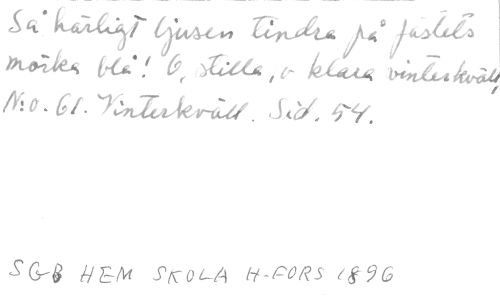 Så härligt ljusen tindra på fästets
mörka blå! O, stilla, o klara vinterkväll,
N:o. 61. Vinterkväll. Sid. 54.
SGB HEM SKOLA H-FORS 1896